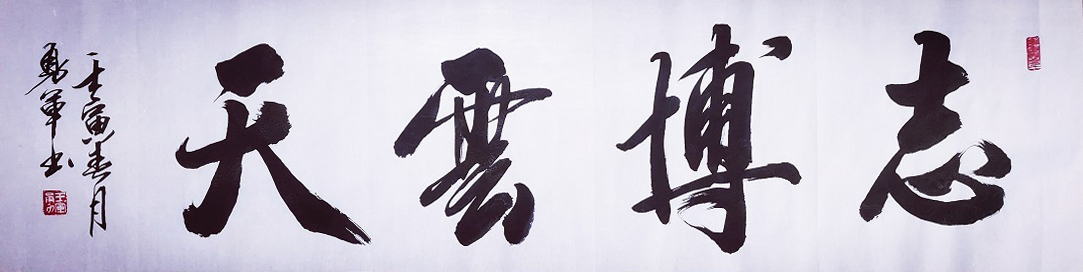 志搏雲天
壬寅春月
勇軍书